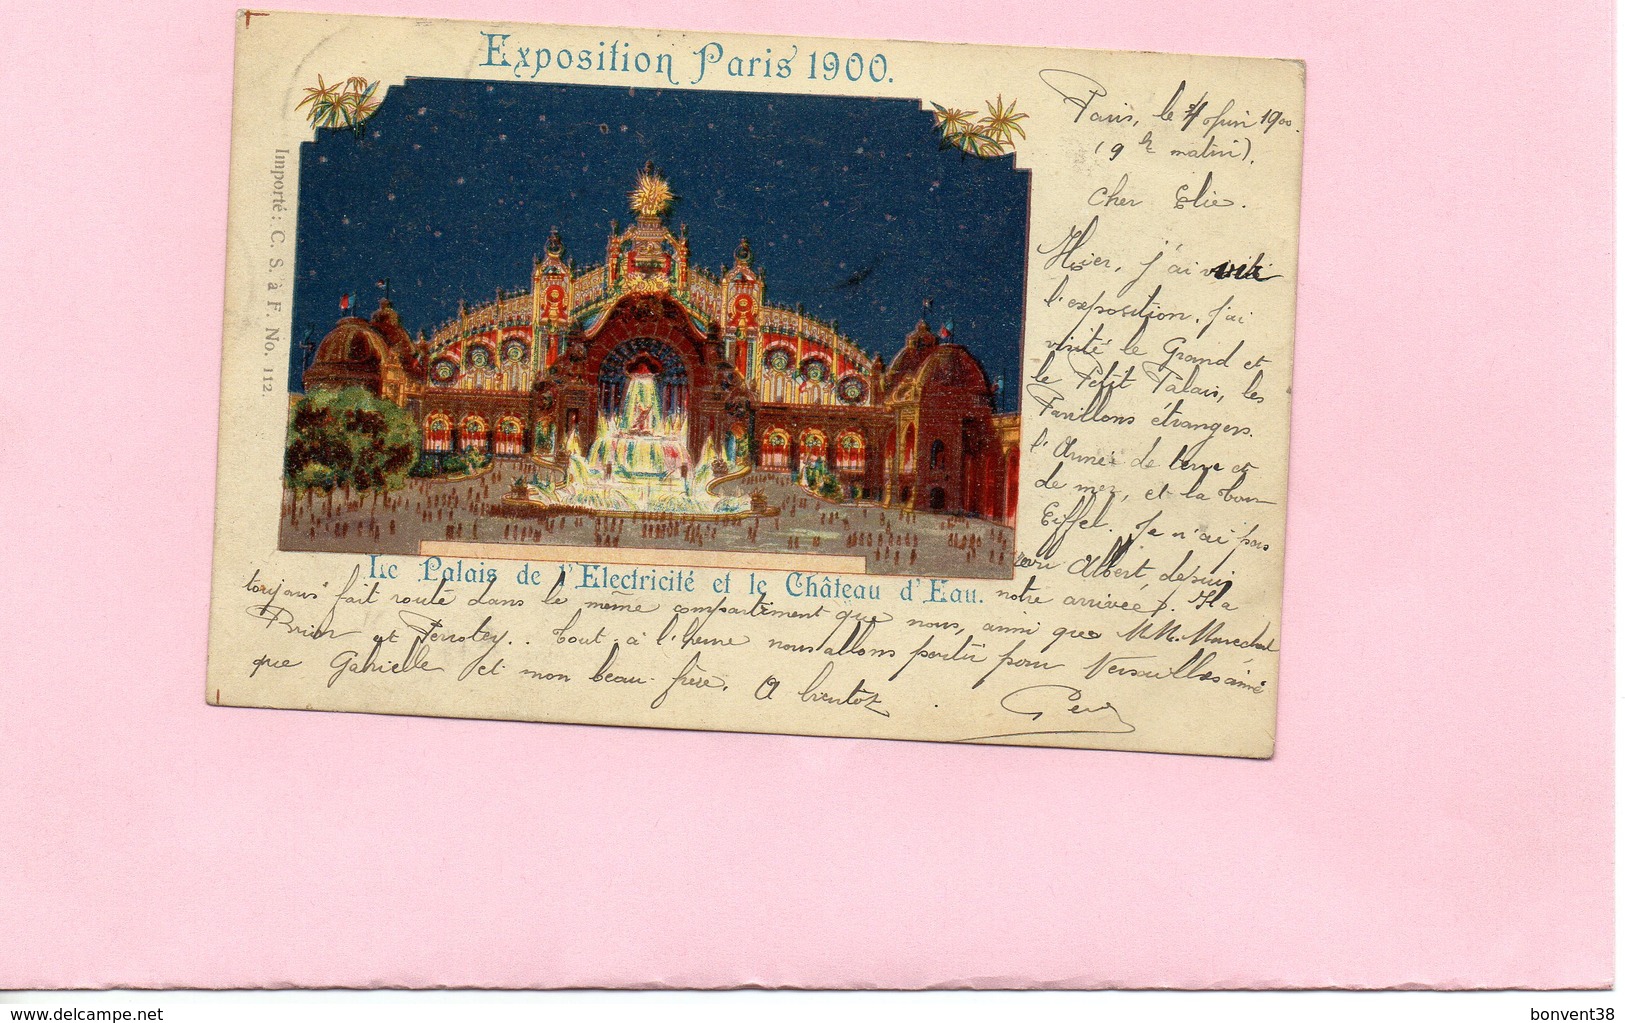 Exposition Paris 1900.
Importé: C. S. à F. No. 112.
Le Palais de l'Electricité et le Château d'Eau.
Paris, le Juin 1900.
(9 h matin).
Cher Elie.
Hier, j'ai
l'exposition. J'ai
visité le Grand et
le Petit Palais, les
Pavillons étrangers.
l'Armée de terre et
de mer, et la Tour
Eiffel. Je n'ai pas
revu Albert, depuis
notre arrivée. Il a
toujours fait route dans le même compartiment que nous, ainsi que MM. Marechal
et Perrotey.. Tout à l'heure nous allons partir pour Versailles
que Gabrielle et mon beau-frère. A bientôt.
www.delcampe.net
bonvent38